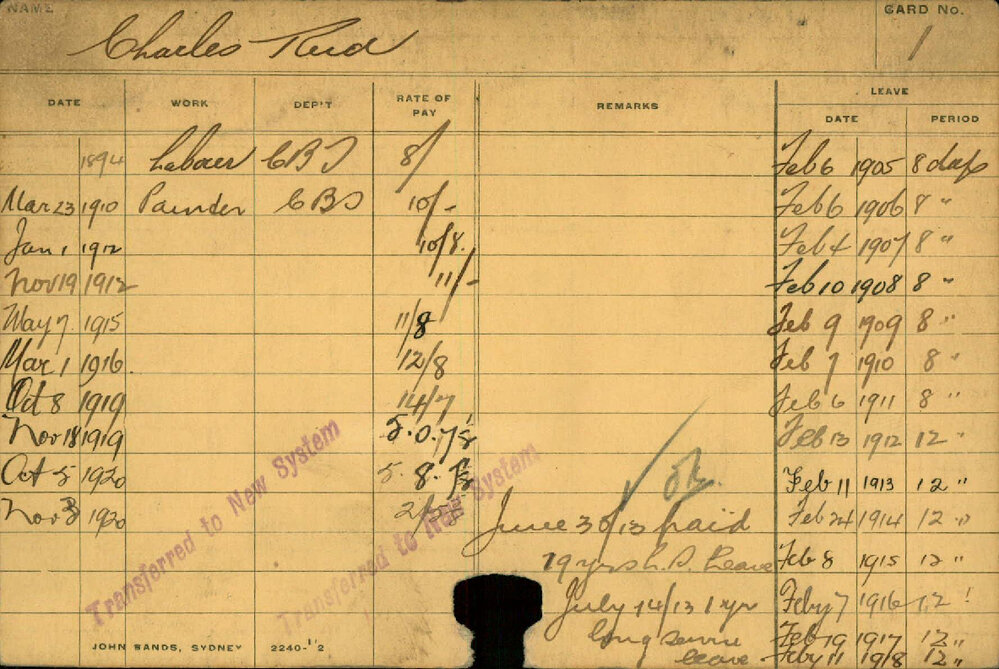 NAME
CARD No.
Charles Reid
1
DATE WORK DEP'T RATE OF PAY REMARKS LEAVE
DATE PERIOD
1894 Labour CBS 8/ Feb 6 1905 8 days
Mar 23 1910 Painter CBS 10/- Feb 6 1906 8 "
Jan 1 1912 10/8. Feb 4 1907 8 "
Nov 19 1912 11/- Feb 10 1908 8 "
May 7. 1915 11/8 Feb 9 1909 8 "
Mar 1 1916. 12/8 Feb 7 1910 8 "
Oct 8 1919 14/7 Feb 6 1911 8 "
Nov 18 1919 5.0.7½ Feb 13 1912 12 "
Oct 5 1920 5.8. Feb 11 1913 12 "
Nov 3 1920 Feb 24 1914 12 "
ok
June 30/13 paid
19 yrs L.S. Leave Feb 8 1915 12 "
July 14/13 1 yr Feby 7 1916 12 "
long service Feb 19 1917 12 "
leave Feby 11 1918 12 "
Transferred to New System
Transferred to New System
JOHN SANDS, SYDNEY 2240-1'2